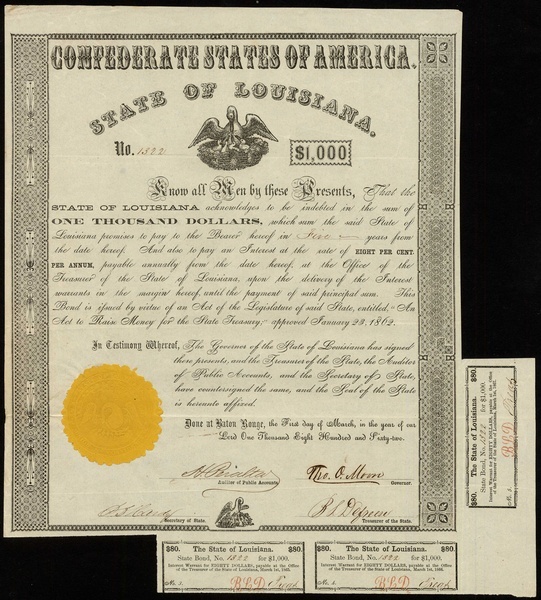 CONFEDERATE STATES OF AMERICA.
STATE OF LOUISIANA.
No. 1822
$1,000
Know all Men by these Presents, That the
STATE OF LOUISIANA acknowledges to be indebted in the sum of
ONE THOUSAND DOLLARS, which sum the said State of
Louisiana promises to pay to the Bearer hereof in Five years from
the date hereof. And also to pay an Interest at the rate of EIGHT PER CENT.
PER ANNUM, payable annually from the date hereof, at the Office of the
Treasurer of the State of Louisiana, upon the delivery of the Interest
warrants in the margin hereof, until the payment of said principal sum. This
Bond is issued by virtue of an Act of the Legislature of said State, entitled, "An
Act to Raise Money for the State Treasury," approved January 23, 1862.
In Testimony Whereof, The Governor of the State of Louisiana has signed
these presents, and the Treasurer of the State, the Auditor
of Public Accounts, and the Secretary of State,
have countersigned the same, and the Seal of the State
is hereunto affixed.
Done at Baton Rouge, the First day of March, in the year of our
Lord One Thousand Eight Hundred and Sixty-two.
Auditor of Public Accounts
Tho. O. Moore
Governor.
Secretary of State.
Treasurer of the State.
$80. The State of Louisiana. $80.
State Bond, No. 1822 for $1,000.
Interest Warrant for EIGHTY DOLLARS, payable at the Office
of the Treasurer of the State of Louisiana, March 1st, 1867.
No. 5.
$80. The State of Louisiana. $80.
State Bond, No. 1822 for $1,000.
Interest Warrant for EIGHTY DOLLARS, payable at the Office
of the Treasurer of the State of Louisiana, March 1st,
$80. The State of Louisiana. $80.
State Bond, No. 1822 for $1,000.
Interest Warrant for EIGHTY DOLLARS, payable at the Office
of the Treasurer of the State of Louisiana, March 1st,